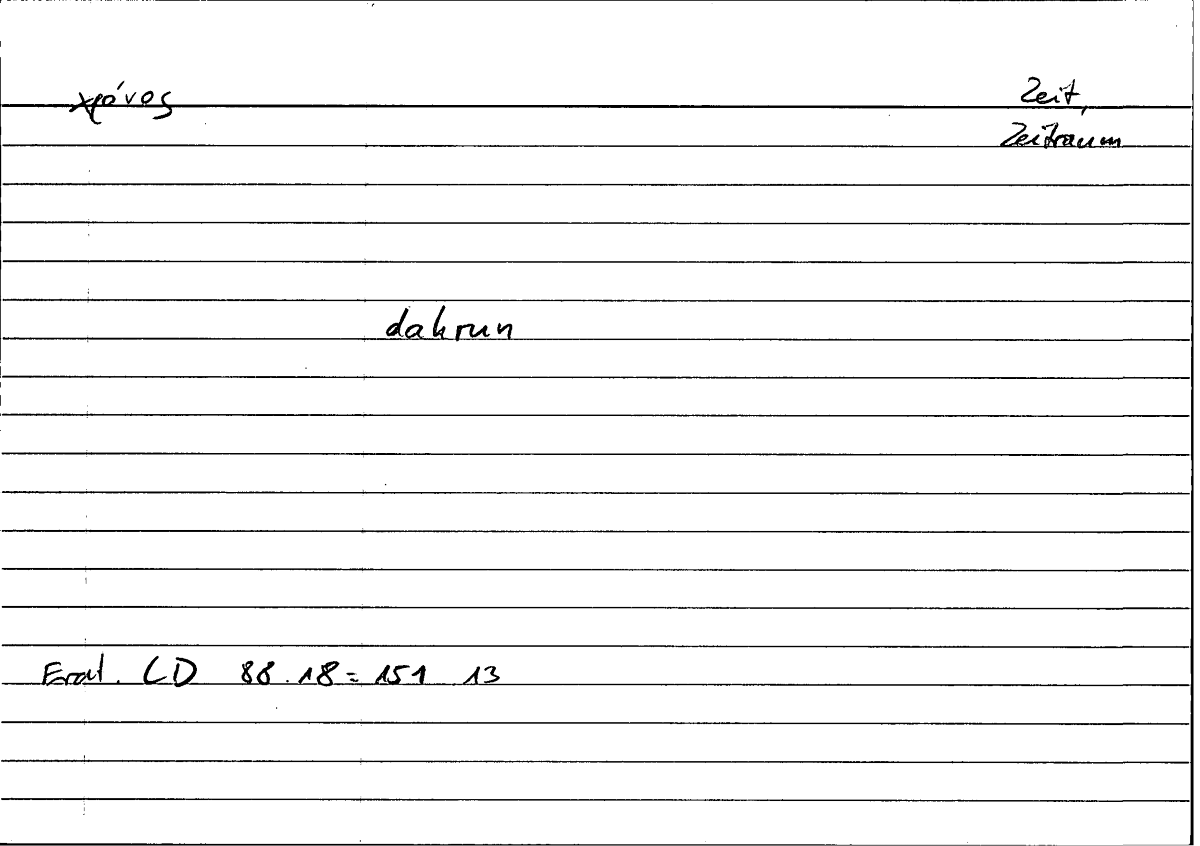 χρόνος Zeit,
Zeitraum
dahrun
Erat. CD 88.18 = 151 13